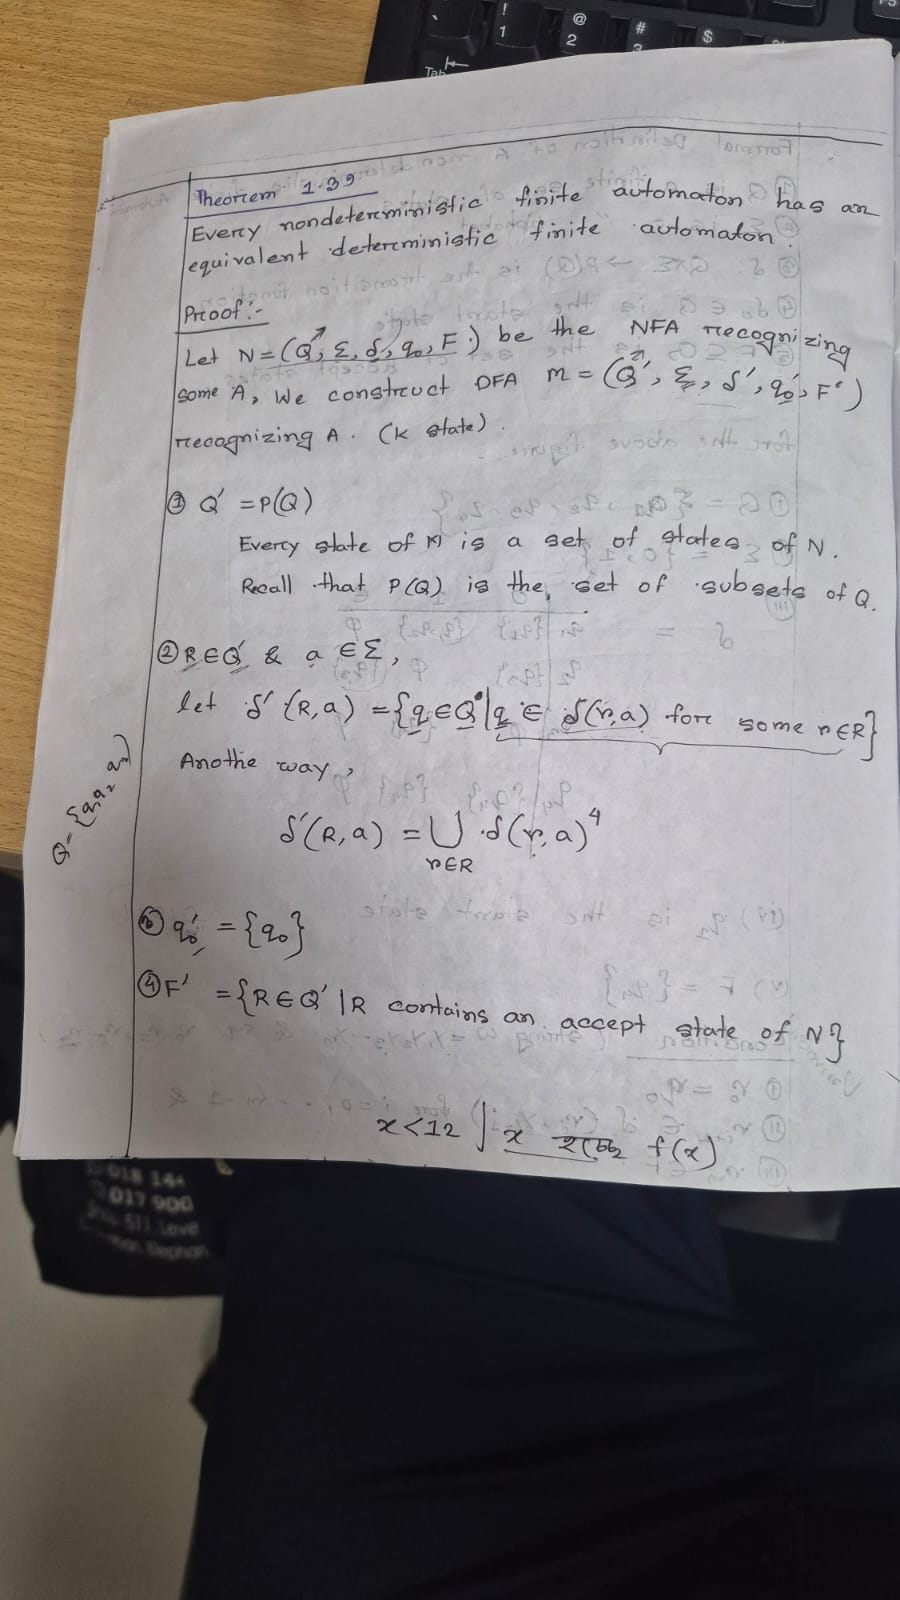 Theorem 1.39
Every nondeterministic finite automaton has an
equivalent deterministic finite automaton.
Proof:-
Let N = (Q, Σ, δ, q₀, F) be the NFA recognizing
some A, We construct DFA M = (Q', Σ, δ', q₀', F')
recognizing A. (k state).
① Q' = P(Q)
Every state of M is a set of states of N.
Recall that P(Q) is the set of subsets of Q.
② R ∈ Q' & a ∈ Σ,
let δ'(R,a) = {q ∈ Q | q ∈ δ(r,a) for some r ∈ R}
Anothe way,
δ'(R,a) = ∪ δ(r,a)
r∈R
Q = {q₁ q₂ q₃}
③ q₀' = {q₀}
④ F' = {R ∈ Q' | R contains an accept state of N}
x<12 ∫ x f(x)
! 1
@ 2
#
$
Tab
018 14
017 900
Leve
Elephan